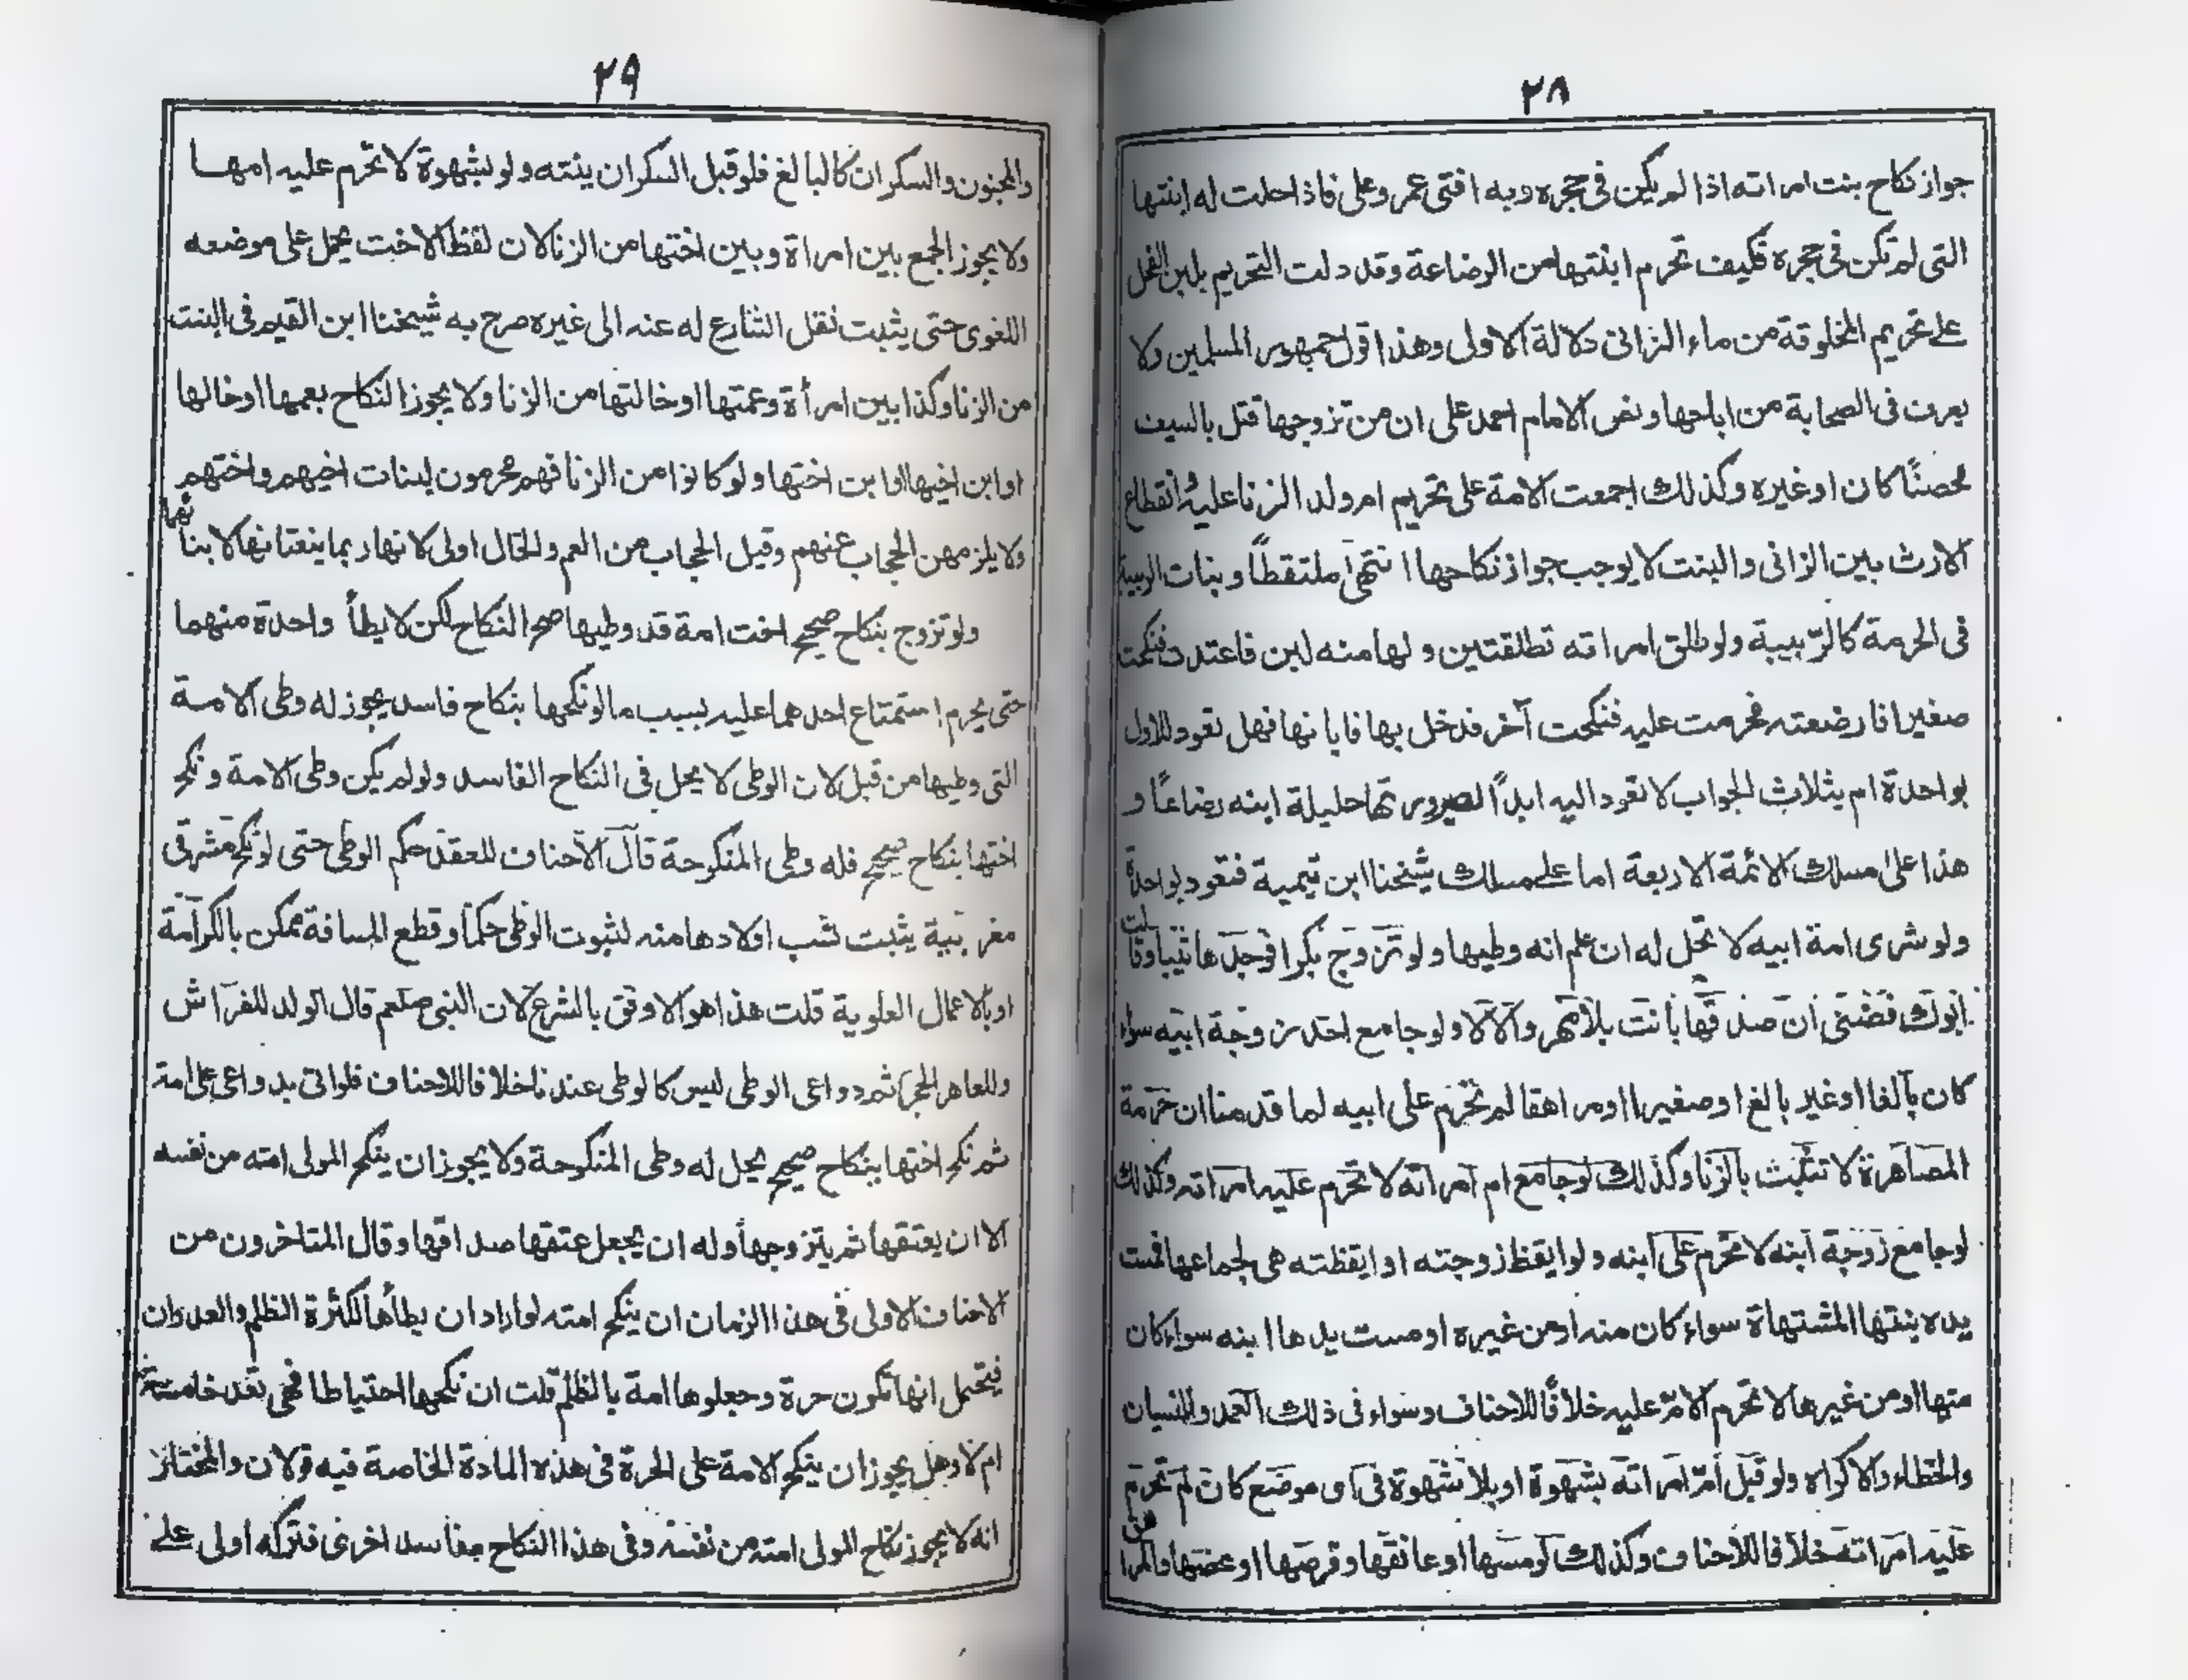 ٢٨
جواز نكاح بنت امراته اذا لم يكن في حجره وبه افتى عمر وعلى فاذا حلت له ابنتها
التي لم تكن في حجره فكيف تحرم ابنتها من الرضاعة وقد دلت التحريم بلبن الفحل
على تحريم المخلوقة من ماء الزاني دلالة الاولى وهذا قول جمهور المسلمين ولا
يعرف في الصحابة من اباحها ونص الامام احمد على ان من تزوجها قتل بالسيف
محصنًا كان او غيره وكذلك اجمعت الامة على تحريم ام ولد الزنا عليه وانقطاع
الارث بين الزاني والبنت لا يوجب جواز نكاحها انتهى ملتقطاً وبنات الربيبة
في الحرمة كالربيبة ولو طلق امراته تطلقتين ولها منه لبن فاعتدت فنكحت
صغيرا فارضعته فحرمت عليه فنكحت آخر فدخل بها فابانها فهل تعود للاول
بواحدة ام بثلاث الجواب لا تعود اليه ابداً لصيرورتها حليلة ابنه رضاعًا و
هذا على مسلك الائمة الاربعة اما على مسلك شيخنا ابن تيمية فتعود بواحدة
ولو شرى امة ابيه لا تحل له ان علم انه وطيها ولو تزوج بكرا فوجدها ثيبا وقالت
ابوك فضني ان صدقها بانت بلا مهر والا لا ولو جامع احد زوجة ابيه سواء
كان بالغا او غير بالغ او صغيرا او مراهقا لم تحرم على ابيه لما قدمنا ان حرمة
المصاهرة لا تثبت بالزنا وكذلك لو جامع ام امراته لا تحرم عليه امراته وكذلك
لو جامع زوجة ابنه لا تحرم على ابنه ولو ايقظ زوجته او ايقظته هي لجماعها فمست
يده بنتها المشتهاة سواء كان منه او من غيره او مست يدها ابنه سواء كان
منها او من غيرها لا تحرم الام عليه خلافًا للاحناف وسواء في ذلك العمد والنسيان
والخطاء والاكراه ولو قبل ام امراته بشهوة او بلا شهوة في اى موضع كان لم تحرم
عليه امراته خلافا للاحناف وكذلك لو مسها او عانقها وقرصها او عضها والمراهق
٢٩
والمجنون والسكران كالبالغ فلو قبل السكران بنته ولو بشهوة لا تحرم عليه امها
ولا يجوز الجمع بين امراة وبين اختها من الزنا لان لفظ الاخت يحمل على موضعه
اللغوى حتى يثبت نقل الشارع له عنه الى غيره صرح به شيخنا ابن القيم في البنت
من الزنا وكذا بين امرأة وعمتها او خالتها من الزنا ولا يجوز النكاح بعمها او خالها
او ابن اخيها او ابن اختها ولو كانوا من الزنا فهم محرمون لبنات اخيهم واختهم
ولا يلزمهن الحجاب عنهم وقيل الحجاب من العم والخال اولى لانهما ربما ينعتانها لابنائهما
ولو تزوج بنكاح صحيح اخت امة قد وطيها صح النكاح لكن لا يطأ واحدة منهما
حتى يحرم استمتاع احدهما عليه بسبب ما لو نكحها بنكاح فاسد يجوز له وطى الامة
التي وطيها من قبل لان الوطى لا يحل في النكاح الفاسد ولو لم يكن وطى الامة ونكح
اختها بنكاح صحيح فله وطى المنكوحة قال الاحناف للعقد حكم الوطى حتى لو نكح مشرقي
مغربية يثبت نسب اولادها منه لثبوت الوطى حكمًا وقطع المسافة ممكن بالكرامة
او بالاعمال العلوية قلت هذا هو الاوفق بالشرع لان النبي صلعم قال الولد للفراش
وللعاهر الحجر ثم دواعى الوطى ليس كالوطى عندنا خلافا للاحناف فلو اتى بدواعى على امة
ثم نكح اختها بنكاح صحيح يحل له وطى المنكوحة ولا يجوز ان ينكح المولى امته من نفسه
الا ان يعتقها ثم يتزوجها وله ان يجعل عتقها صداقها وقال المتاخرون من
الاحناف الاولى في هذا الزمان ان ينكح امته لو اراد ان يطأها لكثرة الظلم والعدوان
فيحتمل انها تكون حرة وجعلوها امة بالظلم قلت ان نكحها احتياطا فهي تعد خامسة
ام لا وهل يجوز ان ينكح الامة على الحرة في هذه المادة الخاصة فيه قولان والمختار
انه لا يجوز نكاح المولى امته من نفسه وفي هذا النكاح مفاسد اخرى فتركه اولى على